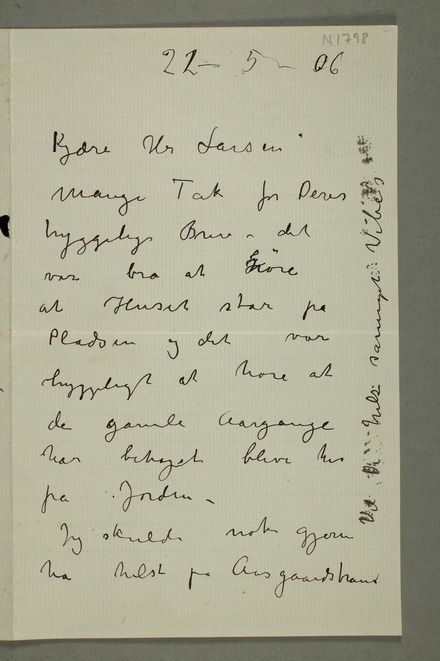 N 1798
22 – 5 – 06
Kjære Hr Larsen
Mange Tak for Deres
hyggelige Brev – det
var bra at høre
at Huset står på
Pladsen og det var
hyggeligt at høre at
de gamle Aargange
har behaget blive hos
på Jorden –
Jeg skulde nok gjerne
ha hilst på Aasgaardstrand
Vil De hilse